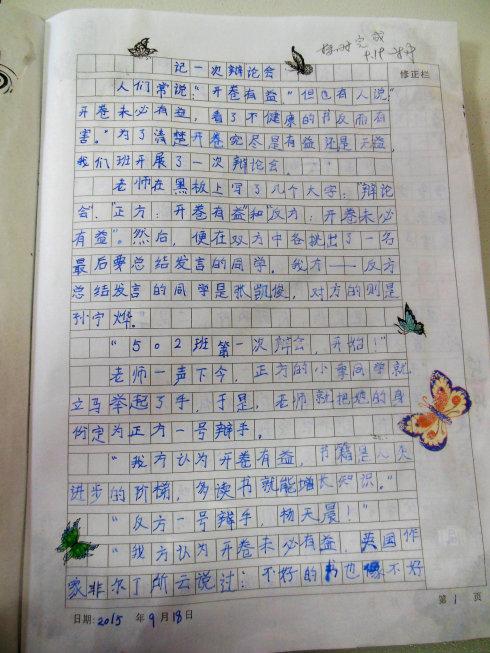 按时完成
9.19
记一次辩论会
修正栏
人们常说:"开卷有益。"但也有人说:"
开卷未必有益,看了不健康的书反而有
害。"为了清楚开卷究尽是有益还是无益,
我们班开展了一次辩论会。
老师在黑板上写了几个大字:"辩论
会"、"正方:开卷有益"和"反方:开卷未必
有益"。然后,便在双方中各挑出了一名
最后要总结发言的同学。我方——反方
总结发言的同学是张凯俊,对方的则是
孙宇烨。
"502班第一次辩会,开始!"
老师一声下令,正方的小季同学就
立马举起了手,于是,老师就把她的身
份定为正方一号辩手。
"我方认为开卷有益,书籍是人类
进步的阶梯,多读书就能增长知识。"
"反方一号辩手,杨天晨!"
"我方认为开卷未必有益,英国作
家非尔丁所云说过:不好的书也像不好
日期:2015年9月18日
第1页